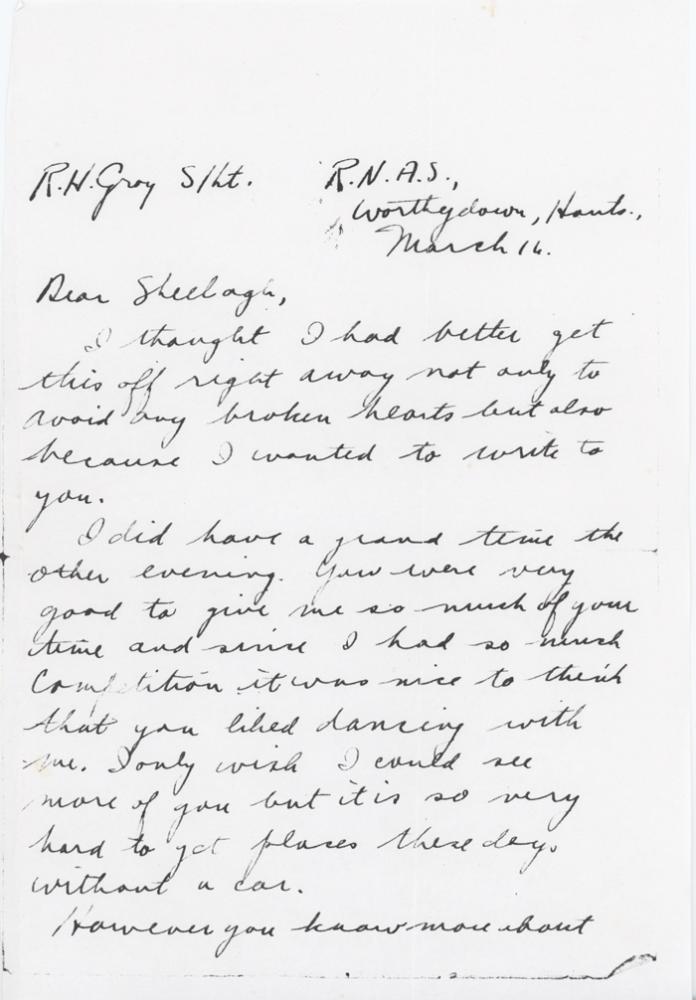 R.H. Gray S/Lt. R.N.A.S.,
Worthydown, Hants.,
March 16.
Dear Sheelagh,
I thought I had better get
this off right away not only to
avoid any broken hearts but also
because I wanted to write to
you.
I did have a grand time the
other evening. You were very
good to give me so much of your
time and since I had so much
competition it was nice to think
that you liked dancing with
me. I only wish I could see
more of you but it is so very
hard to get places these days
without a car.
However you know more about